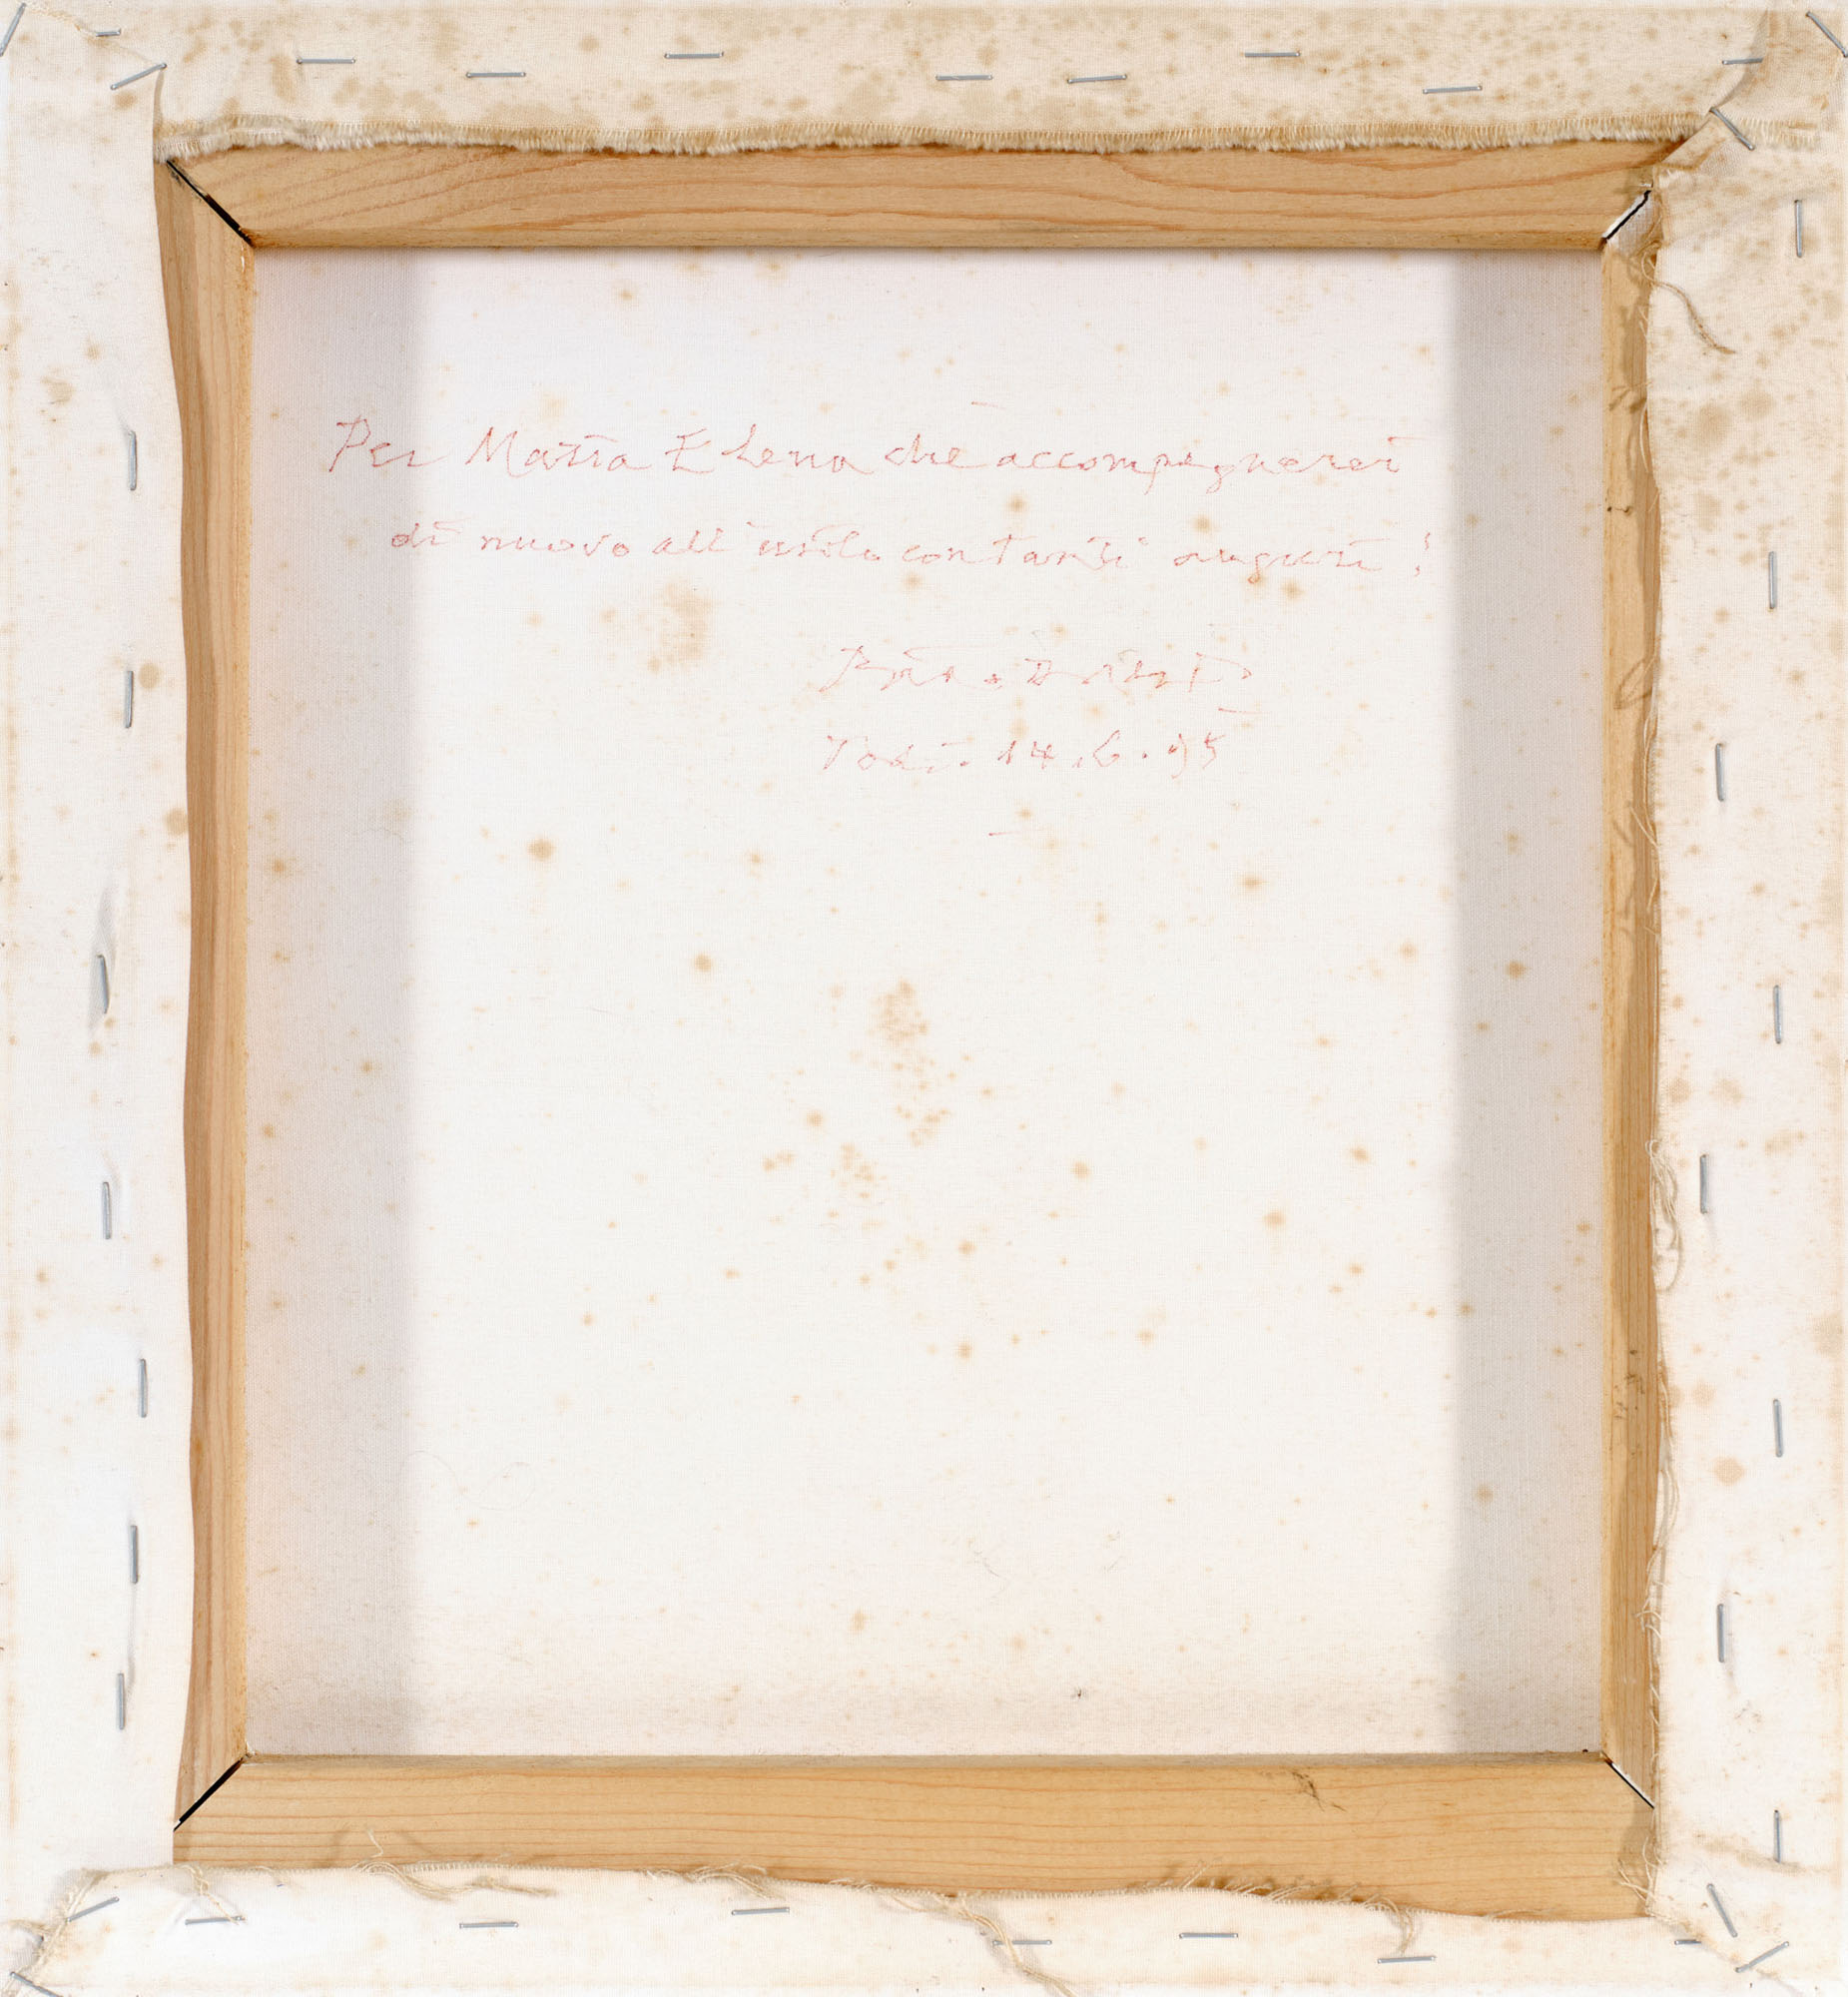 Per Maria Elena che accompagnerei
di nuovo all'asilo con tanti auguri!
Todi. 14.6.95